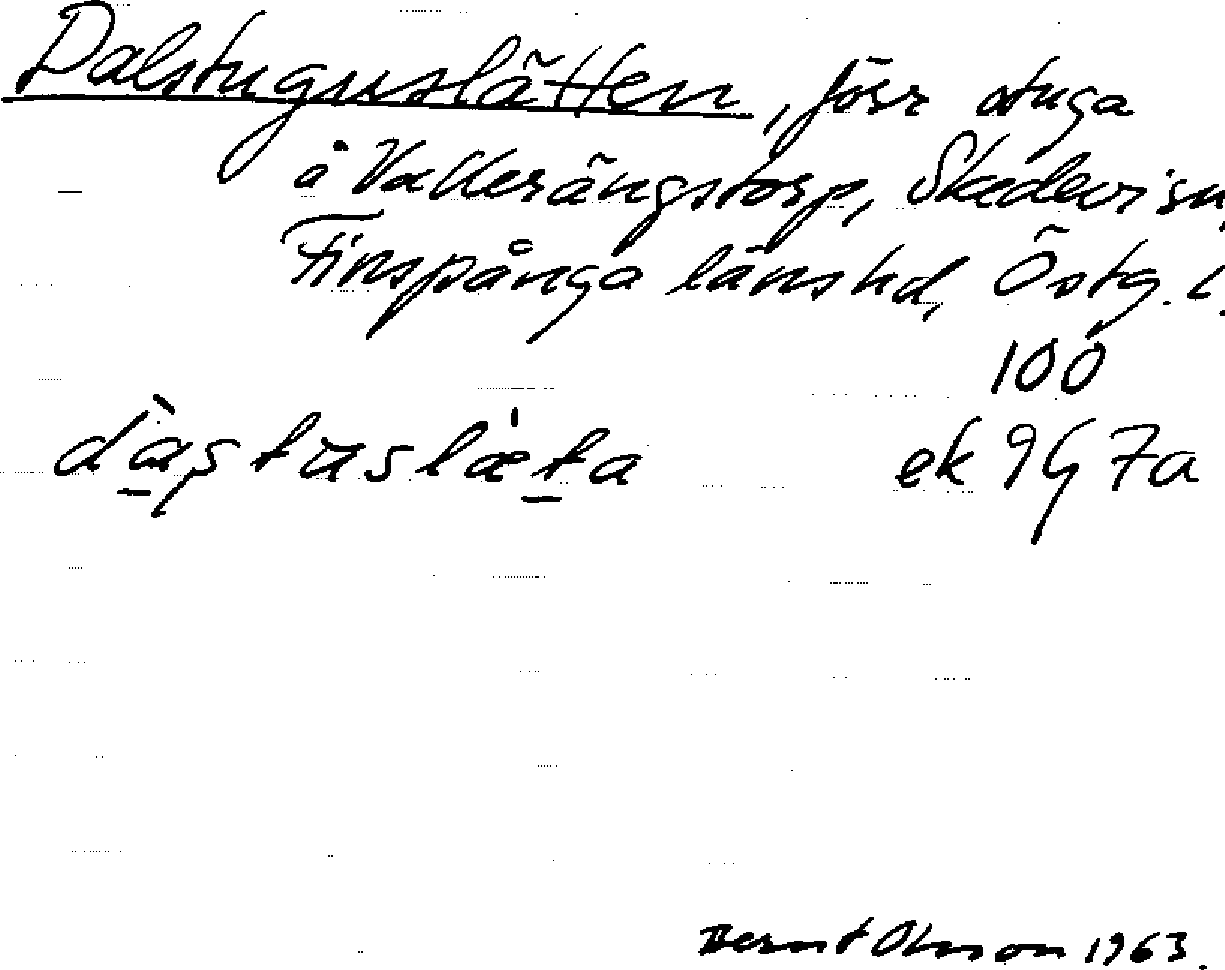 Dalstuguslätten, förr stuga
å Vallerängstorp, Skedevi sn,
Finspånga länshd, Östg. l.
100
dàʂtuslæ̀ta ek 9G 7a
Bernt Olsson 1963.